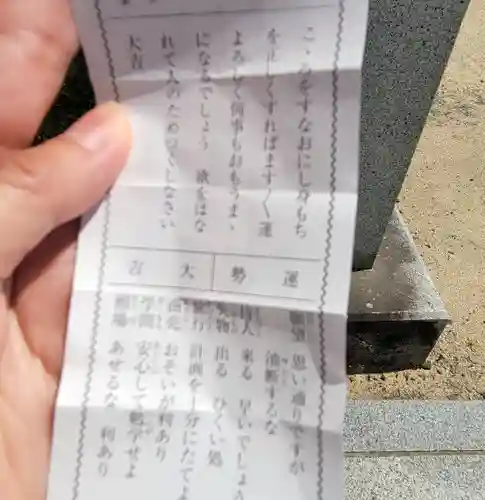 こゝろをすなおにし身もち
を正しくすればますく運
よろしく何事もおもうまゝ
になるでしょう 欲をはな
れて人のためにつくしなさい
大吉
運勢
大吉
願望 思い通りですが
油断するな
待人 来る 早いでしょう
失物 出る ひくい処
旅行 計画を十分にたてよ
商売 おそいが利あり
学問 安心して勉学せよ
相場 あせるな 利あり